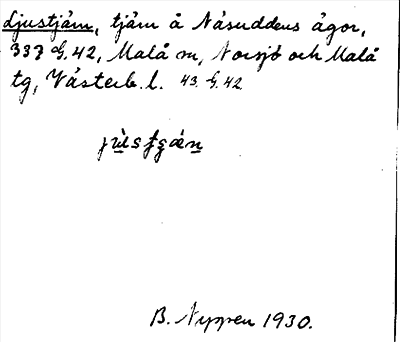 Ljustjärn, tjärn å Näsuddens ägor,
337 G.42, Malå sn, Norsjö och Malå
tg, Västerb. l. 43. G. 42
B. Nyppen 1930.